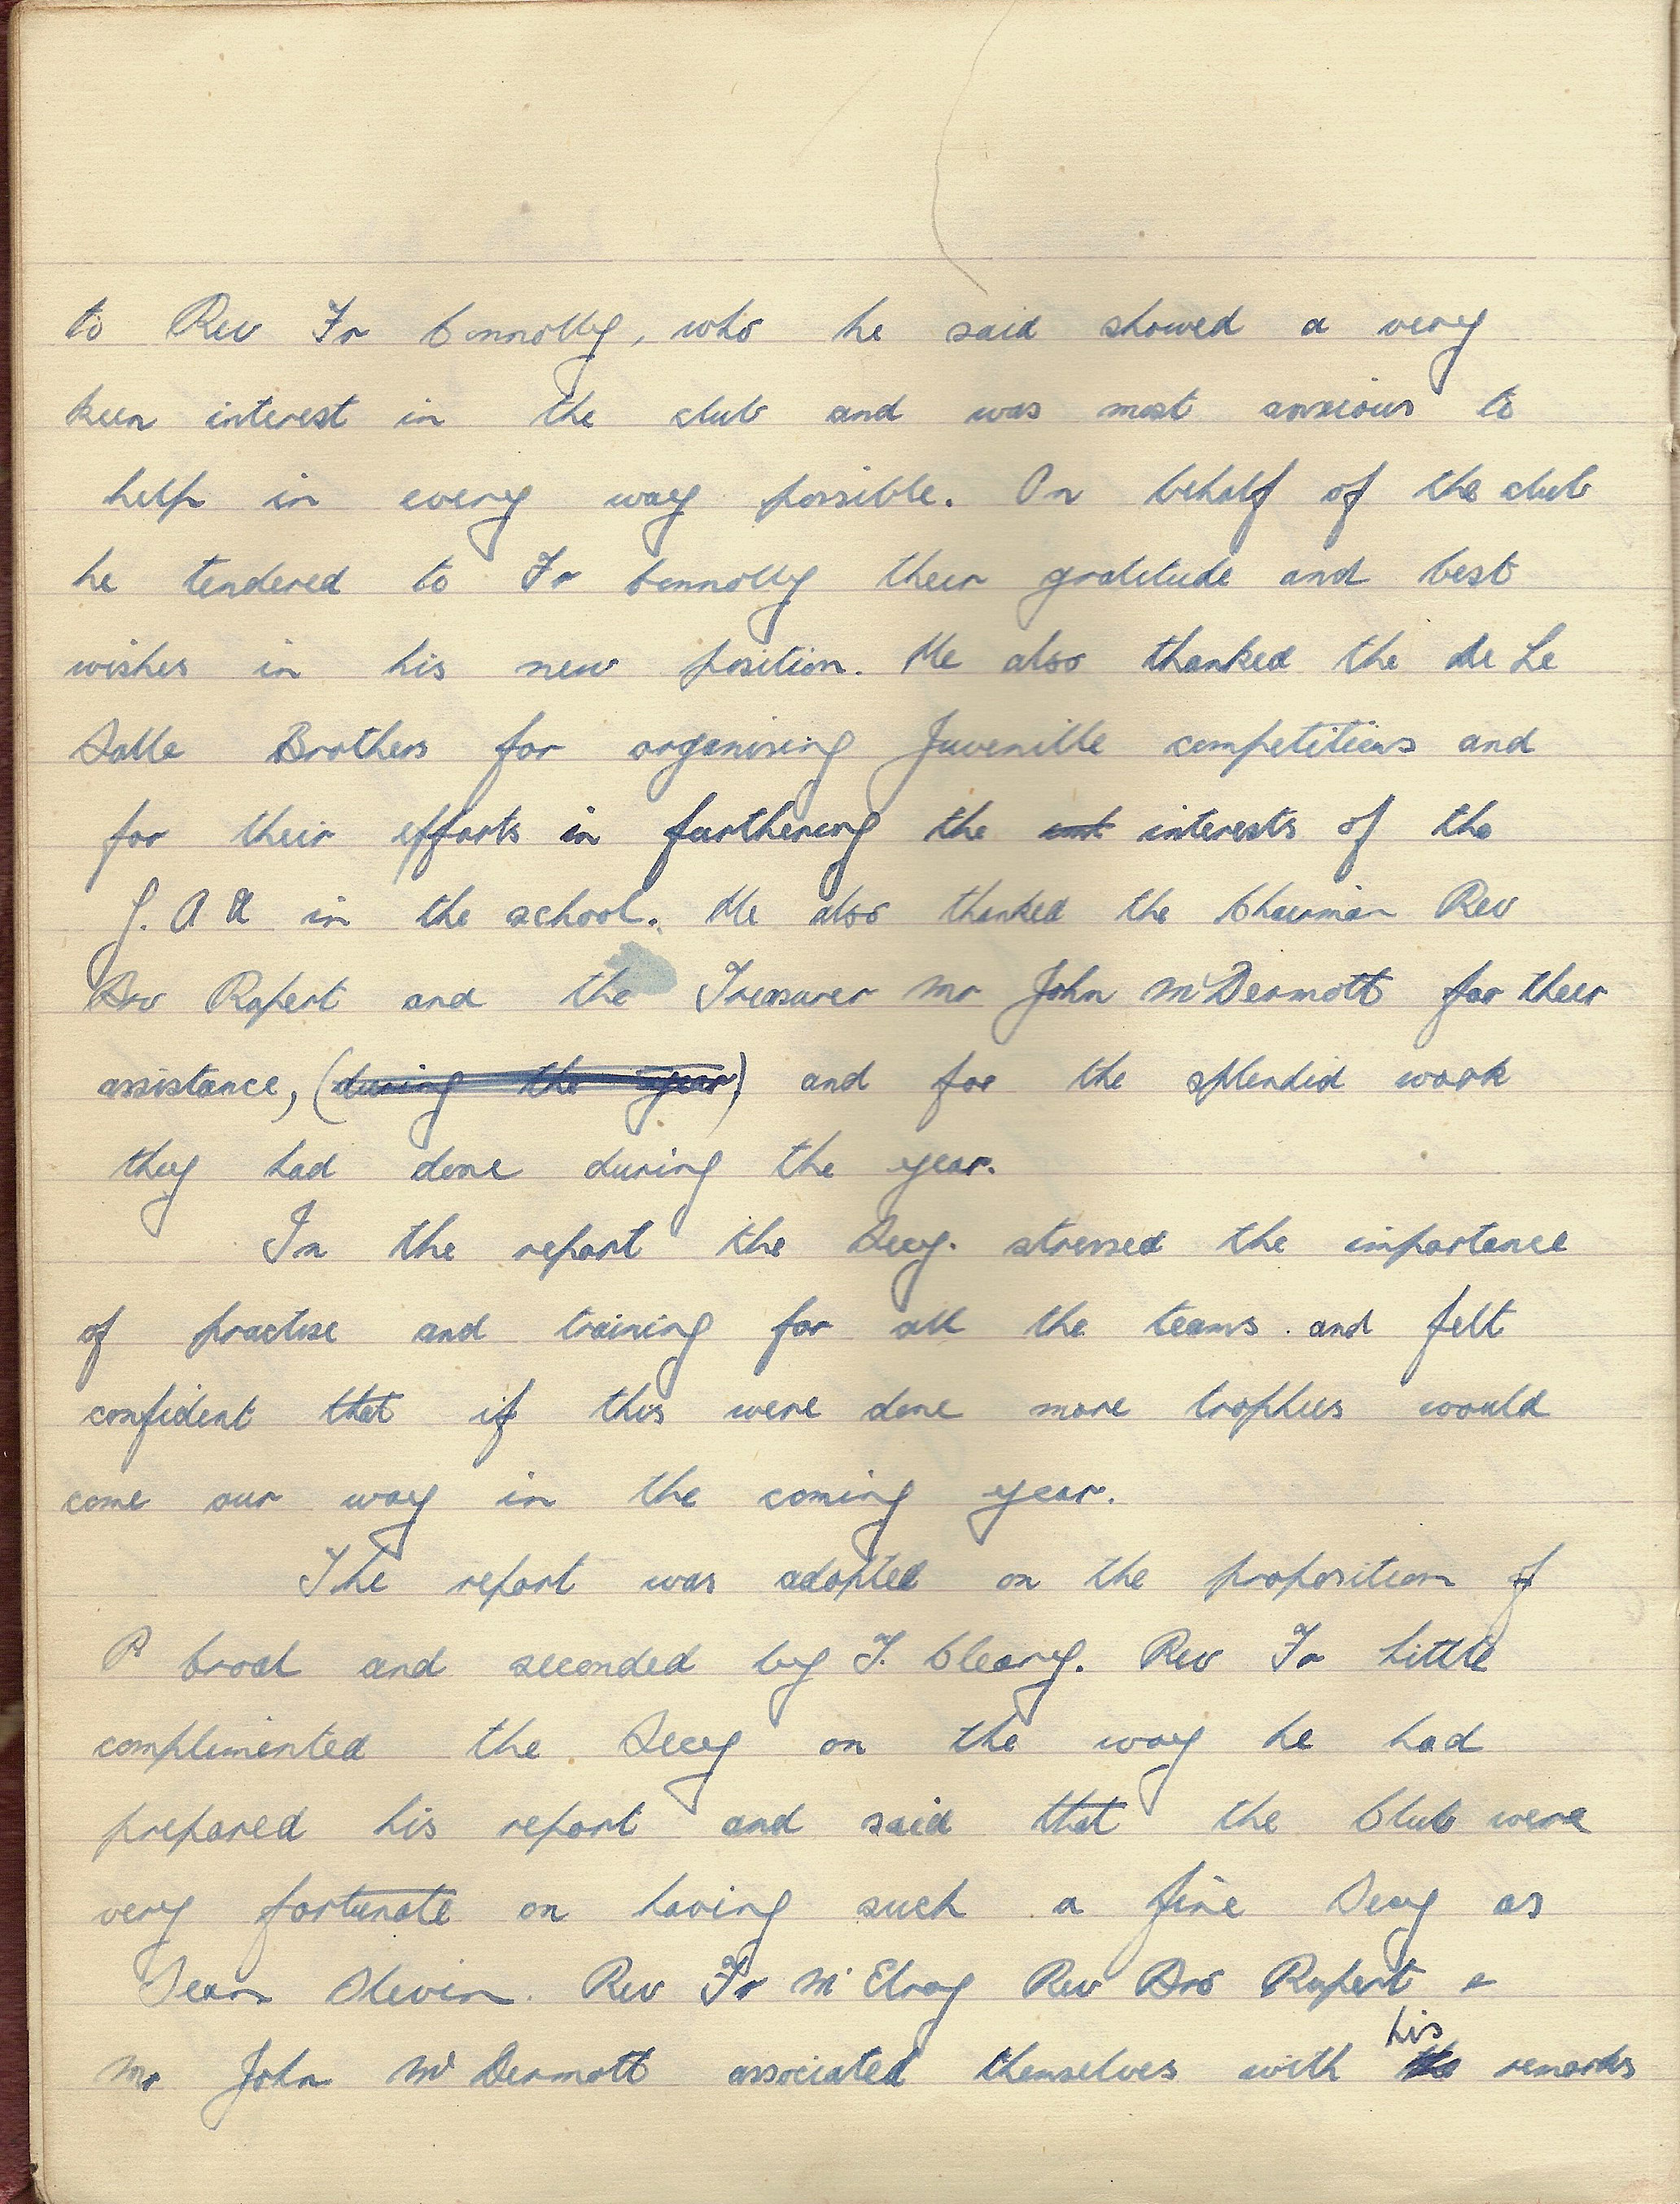 to Rev Fr Connolly, who he said showed a very
keen interest in the club and was most anxious to
help in every way possible. On behalf of the club
he tendered to Fr Connolly their gratitude and best
wishes in his new position. He also thanked the De Le
Salle Brothers for organising Juvenille competitions and
for their efforts in furthering the int interests of the
G. A A in the school. He also thanked the Chairman Rev
Bro Rupert and the Treasurer Mr John McDermott for their
assistance, (during the year) and for the splendid work
they had done during the year.
In the report the Secy. stressed the importance
of practise and training for all the teams and felt
confident that if this were done more trophies would
come our way in the coming year.
The report was adopted on the proposition of
P and seconded by T. Cleary. Rev Fr Little
complimented the Secy on the way he had
prepared his report and said that the Club were
very fortunate on having such a fine Secy as
Sean Slevin. Rev Fr McElroy Rev Bro Rupert &
Mr John McDermott associated themselves with the his remarks